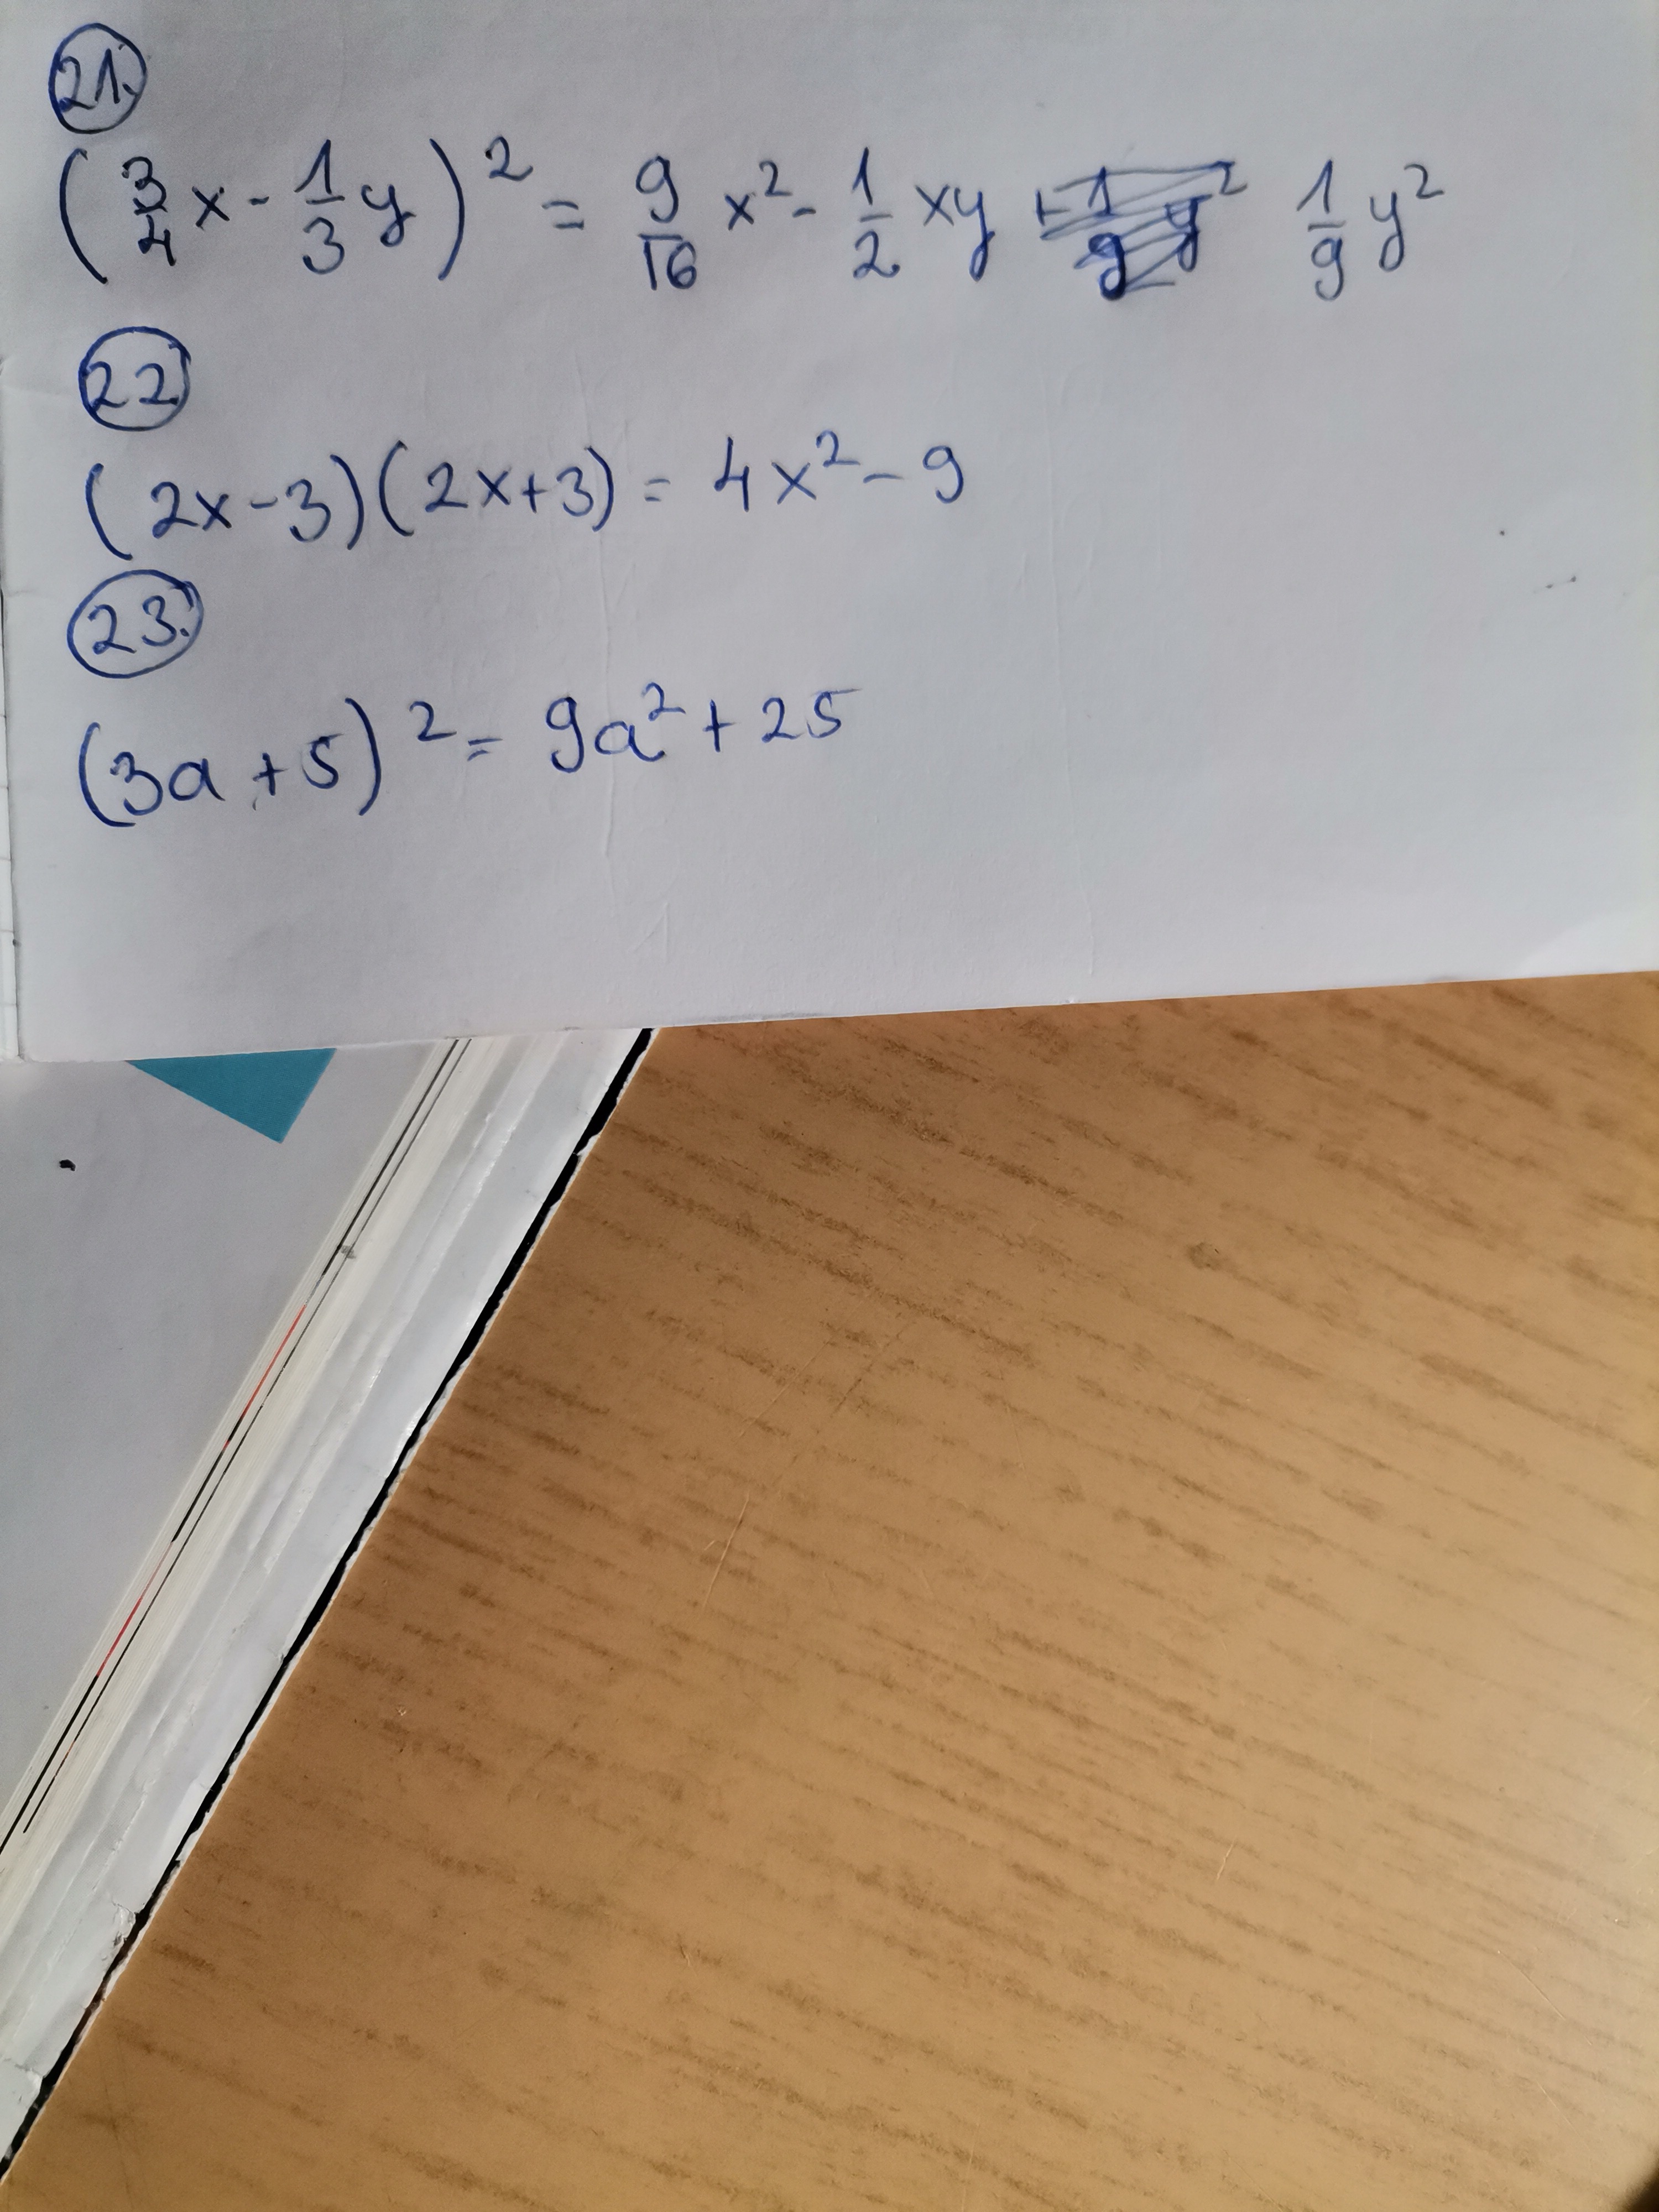 21.
(3/4 x - 1/3 y)² = 9/16 x² - 1/2 xy + 1/9 y² 1/9 y²
22.
(2x-3)(2x+3) = 4x² - 9
23.
(3a+5)² = 9a² + 25